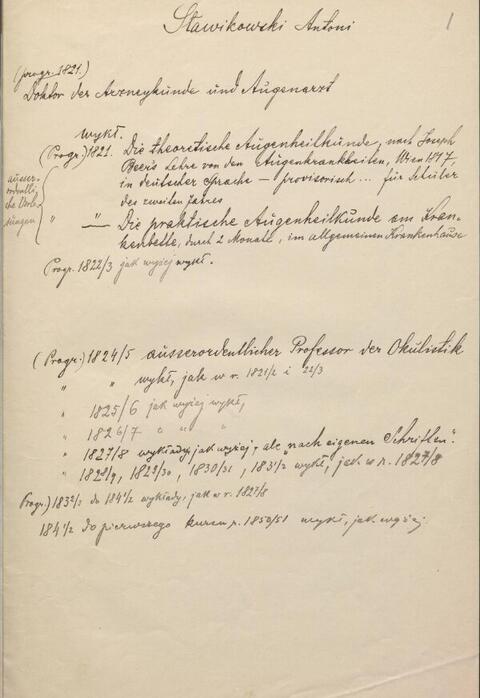 Sławikowski Antoni
1
(progr. 1821.)
Doktor der Arzneykunde und Augenarzt
wykł.
(Progr.) 1821. Die theoretische Augenheilkunde, nach Joseph
Beer's Lehre von den Augenkrankheiten, Wien 1817,
in deutscher Sprache – provisorisch... für Schüler
des zweiten Jahres
ausser-
ordentli-
che Vorle-
sungen
" " — Die praktische Augenheilkunde am Kran-
kenbette, durch 2 Monate, im allgemeinen Krankenhause
Progr. 1822/3 jak wyżej wykł.
(Progr.) 1824/5 ausserordentlicher Professor der Okulistik
" " wykł, jak w r. 1821/2 i 22/3
" 1825/6 jak wyżej wykł,
" 1826/7 " " "
" 1827/8 wykłady, jak wyżej, ale "nach eigenen Schriften".
" 1828/9, 1829/30, 1830/31, 1831/2 wykł, jak w r. 1827/8
Progr.) 1832/3 do 1841/2 wykłady, jak w r. 1827/8
1841/2 do pierwszego kursu r. 1850/51 wykł, jak wyżej.